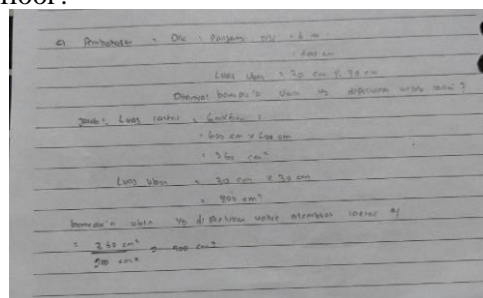 noor?
c) Pembahasan : Dik : Panjang sisi = 6 m
= 600 cm
Luas Ubin = 30 cm x 30 cm
Ditanya: banyak'a Ubin yg diperlukan untuk lantai ?
Jawab : Luas lantai =
= 600 cm x 600 cm
= 360 cm²
Luas Ubin = 30 cm x 30 cm
= 900 cm²
banyak'a ubin yg diperlukan untuk menutupi lantai
= 360 cm² =
900 cm²